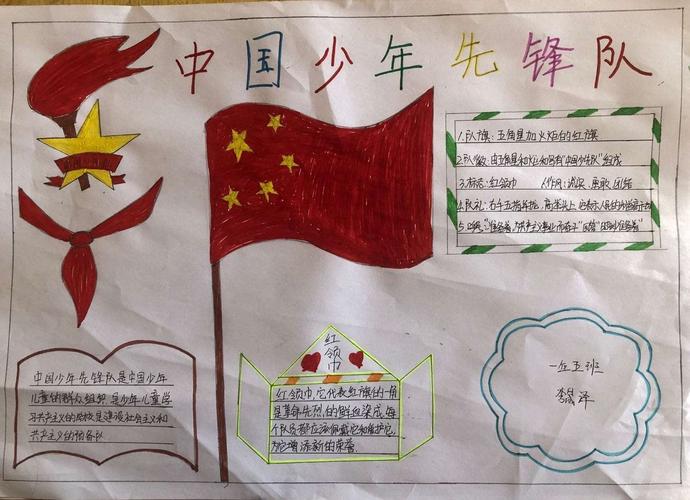 中国少年先锋队
1.队旗:五角星加火炬的红旗
2.队徽:由五角星和火炬和写有"中国少先队"组成
3.标志:红领巾 作风:诚实、勇敢、团结
4.队礼:右手五指并拢,高举头上,它表示人民的利益高于一切
5.呼号:"准备着,为共产主义事业而奋斗"回答"时刻准备着"
红领巾
中国少年先锋队是中国少年
儿童的群众组织,是少年儿童学
习共产主义的学校,是建设社会主义和
共产主义的预备队
红领巾,它代表红旗的一角
是革命先烈的鲜血染成,每
个队员都应该佩戴它和维护它
为它增添新的荣誉.
一年五班
李 泽